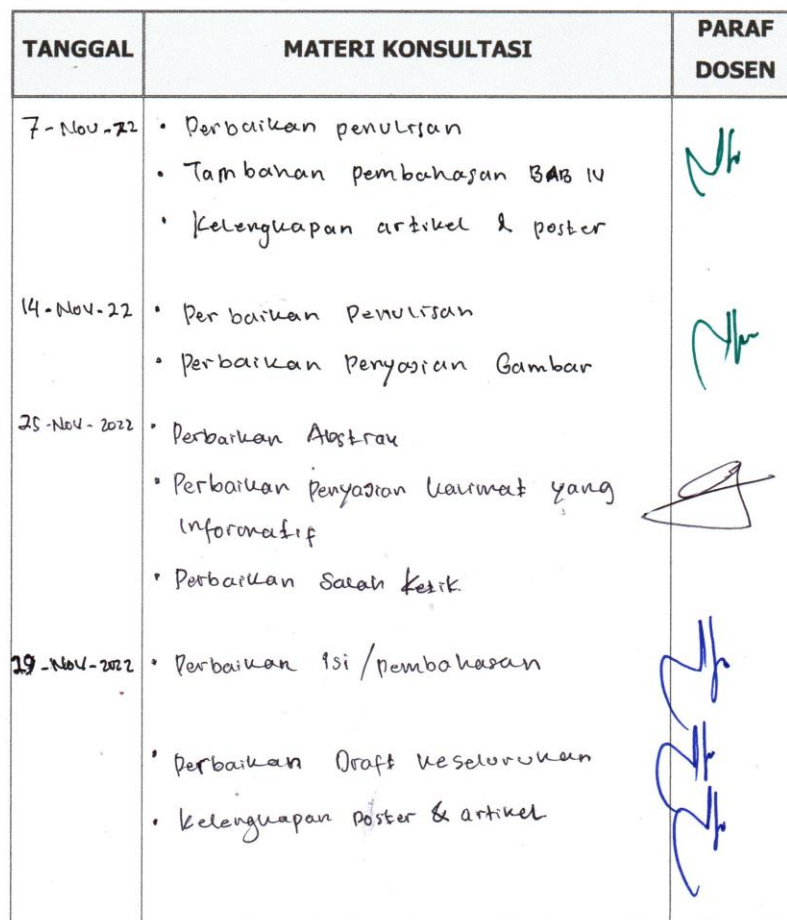 TANGGAL
MATERI KONSULTASI
PARAF
DOSEN
7-Nov-22
• Perbaikan penulisan
• Tambahan pembahasan BAB IV
• Kelengkapan artikel & poster
14-Nov-22
• Perbaikan Penulisan
• Perbaikan Penyajian Gambar
25-Nov-2022
• Perbaikan Abstrak
• Perbaikan Penyajian kalimat yang
informatif
• Perbaikan Salah Ketik
29-Nov-2022
• Perbaikan isi/pembahasan
• Perbaikan Draft keseluruhan
• Kelengkapan poster & artikel